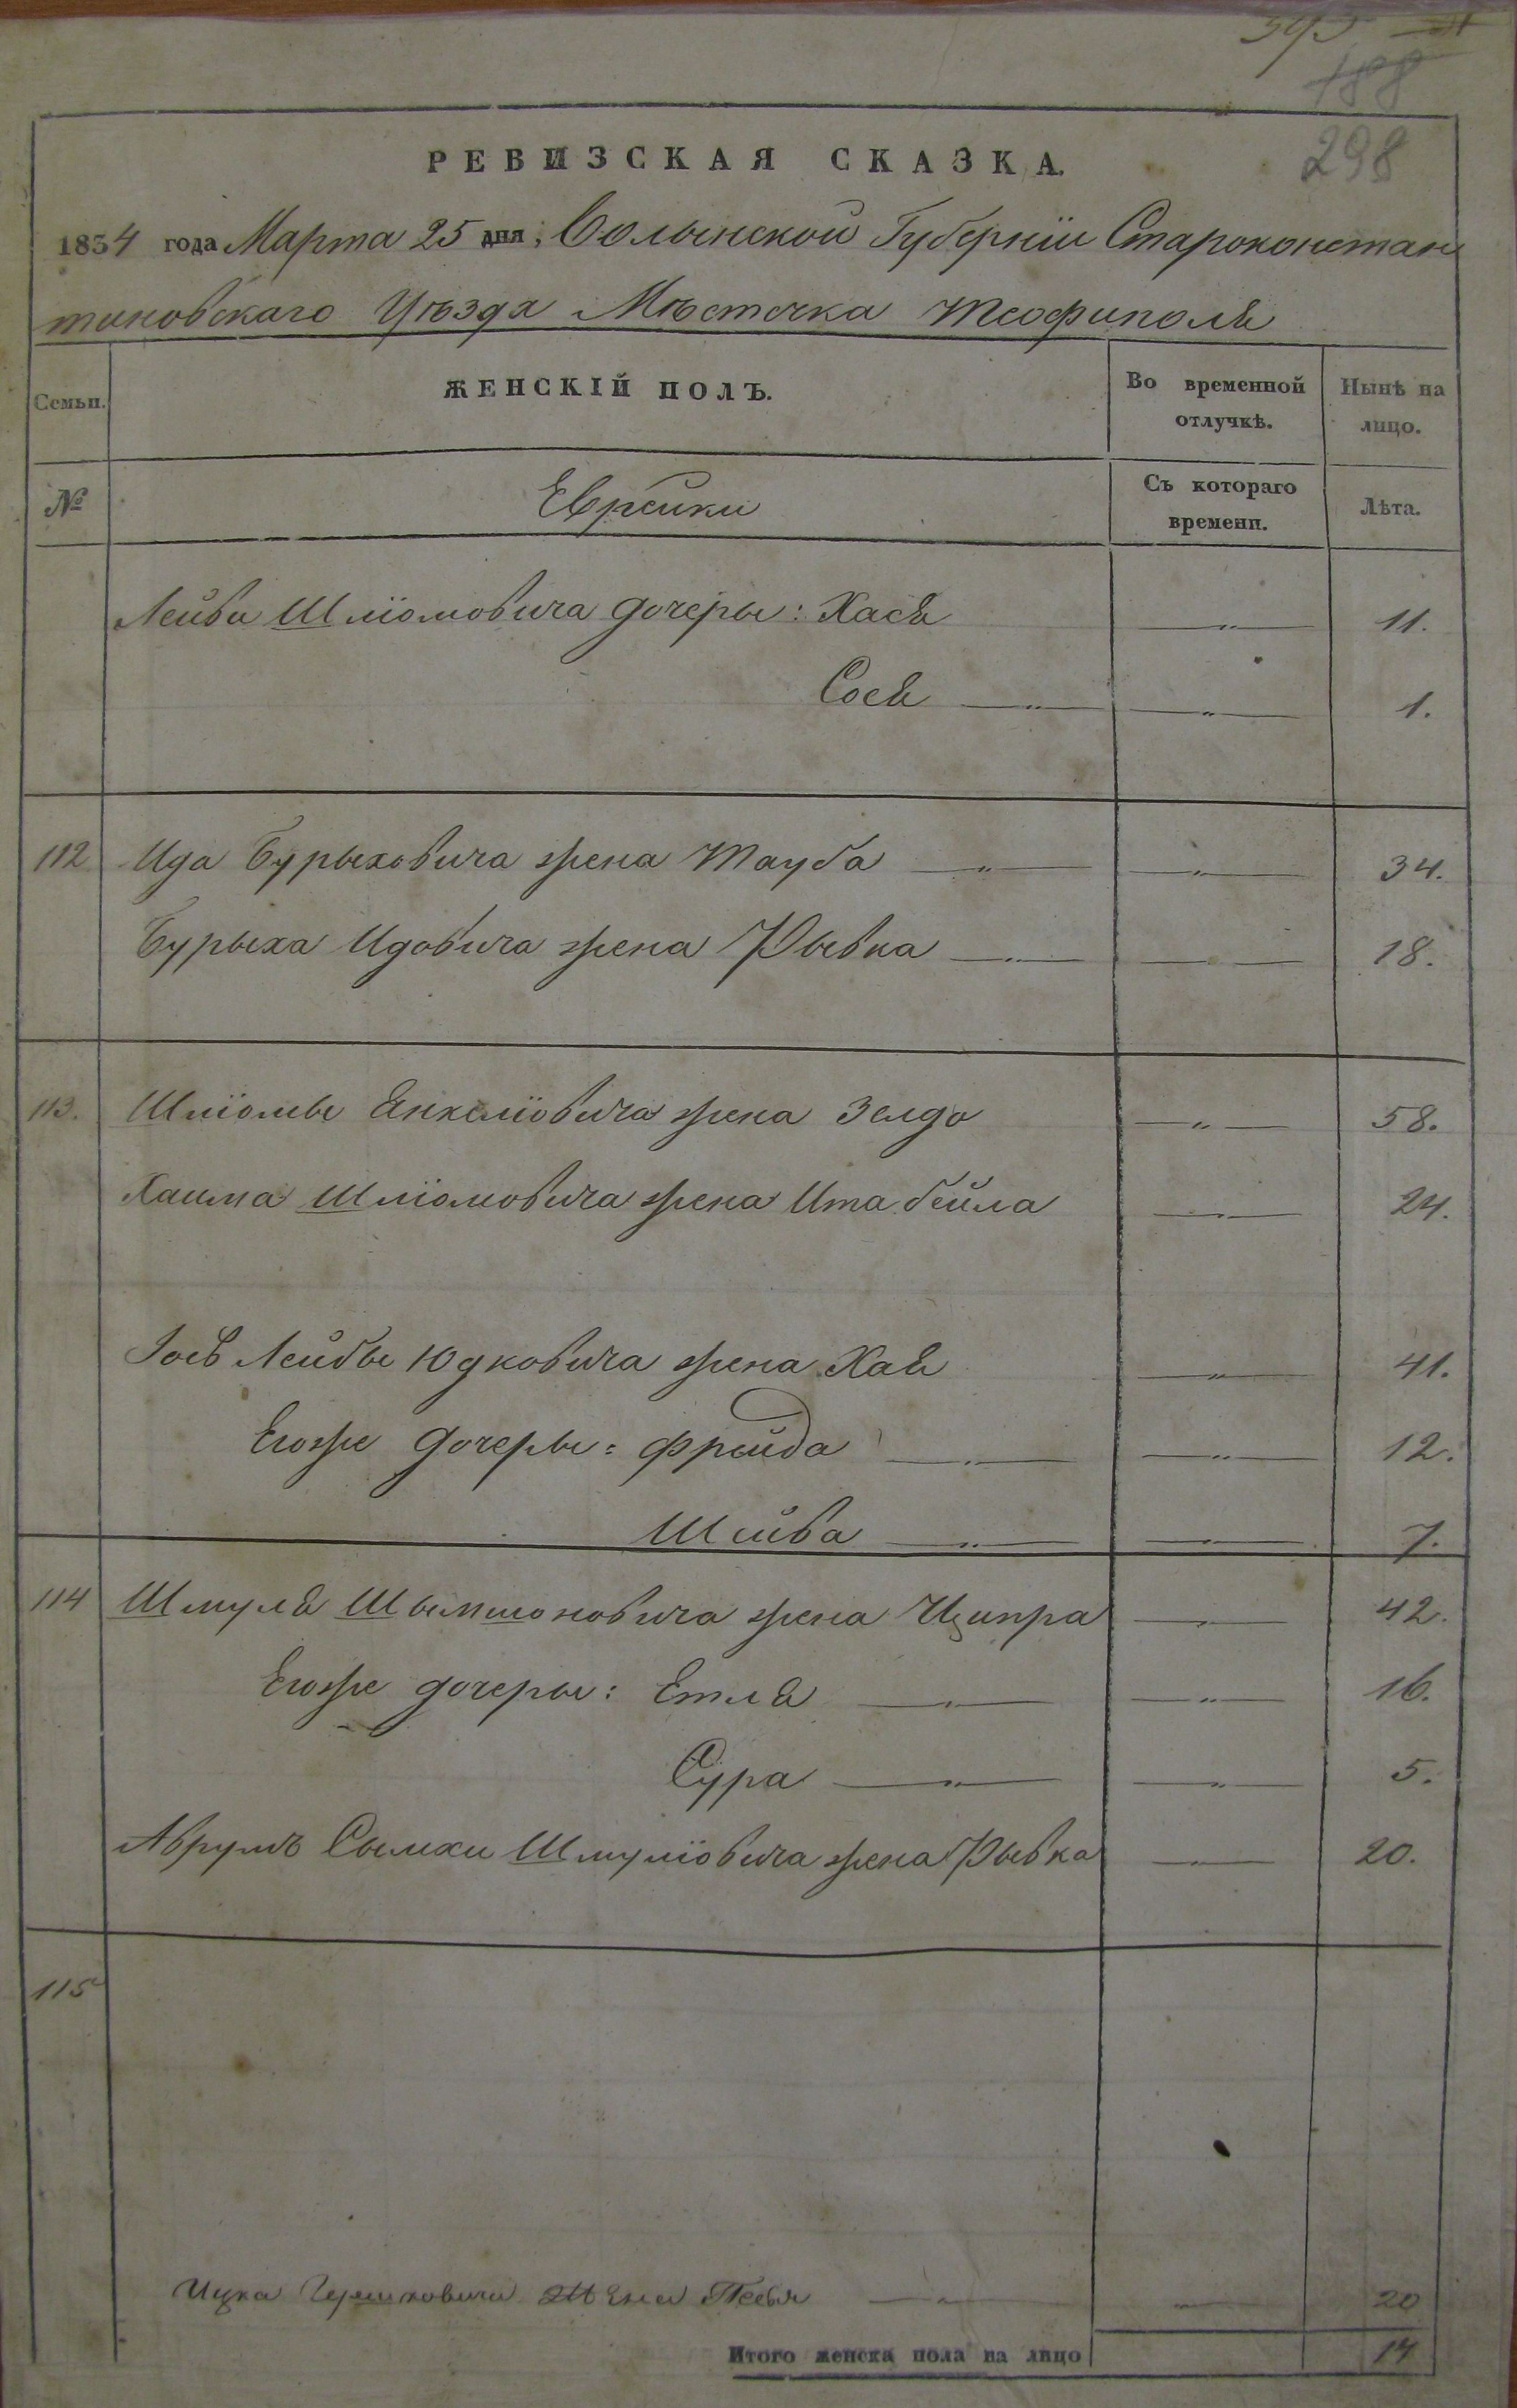 395
188
298
РЕВИЗСКАЯ СКАЗКА.
1834 года Марта 25 дня, Волынской Губерніи Староконстан
тиновскаго Уѣзда Мѣстечка Теофиполя
Семьи. ЖЕНСКІЙ ПОЛЪ. Во временной отлучкѣ. Нынѣ на лицо.
№ Еврейки Съ котораго времени. Лѣта.
Лейби Шліомовича дочеры: Хася — „ — 11.
Сося — „ — — „ — 1.
112 Ида Бурыховича жена Тауба — „ — — „ — 34.
Бурыха Идовича жена Рывка — „ — — „ — 18.
113. Шліомы Янкеліовича жена Зелдо — „ — 58.
Хаима Шліомовича жена Ита бейла — „ — 24.
Іось Лейбы Юдковича жена Хая — „ — 41.
Егоже дочеры: Фрейда — „ — — „ — 12.
Шейва — „ — — „ — 7.
114 Шмуля Шымшоновича жена Ципра — „ — 42.
Егоже дочеры: Етля — „ — — „ — 16.
Сура — „ — — „ — 5.
Аврумъ Сымхи Шмуліовича жена Рывка — „ — 20.
115
Ицка Гершковича жена Песя — „ — — „ — 20
Итого женска пола на лицо 14